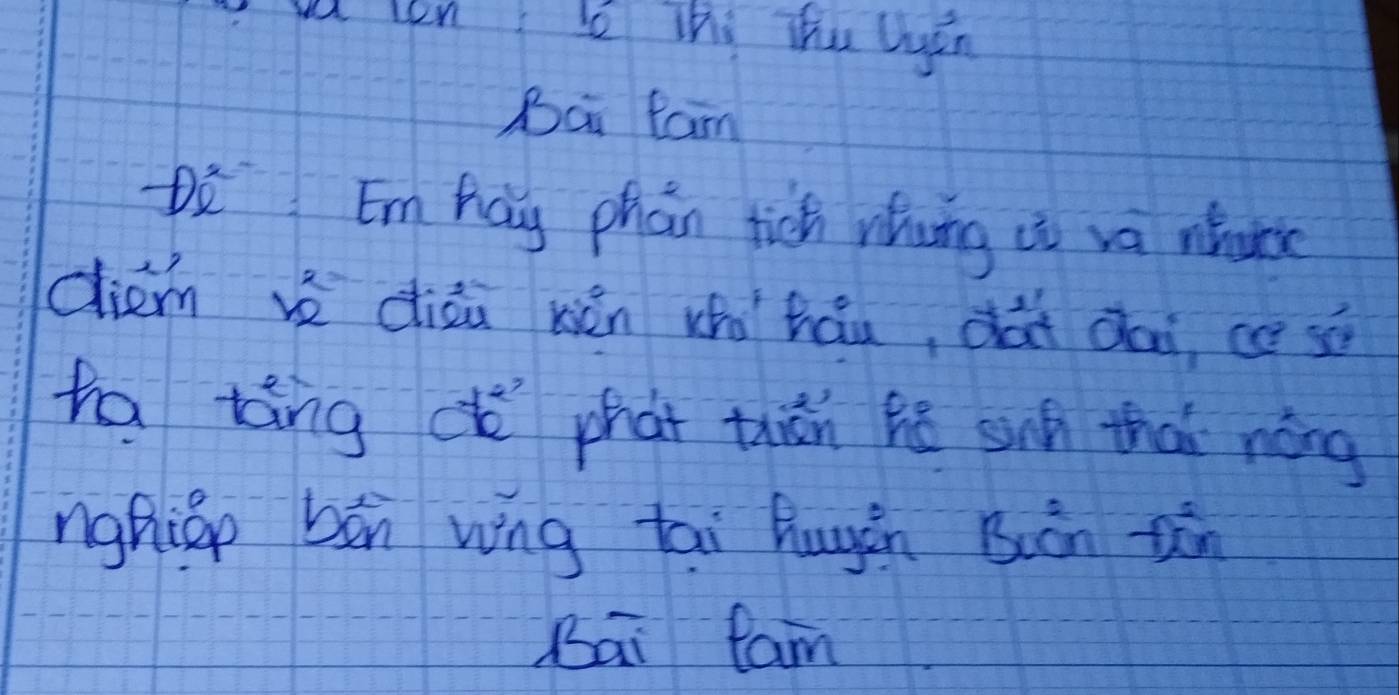 và tên: Lê Thị Thu Uyên
Bài làm
Đề: Em hãy phân tích những ưu và nhược
điểm về điều kiện khí hậu, đất đai, cơ sở
hạ tầng để phát triển hệ sinh thái nông
nghiệp bền vững tại huyện Buôn Đôn
Bài làm